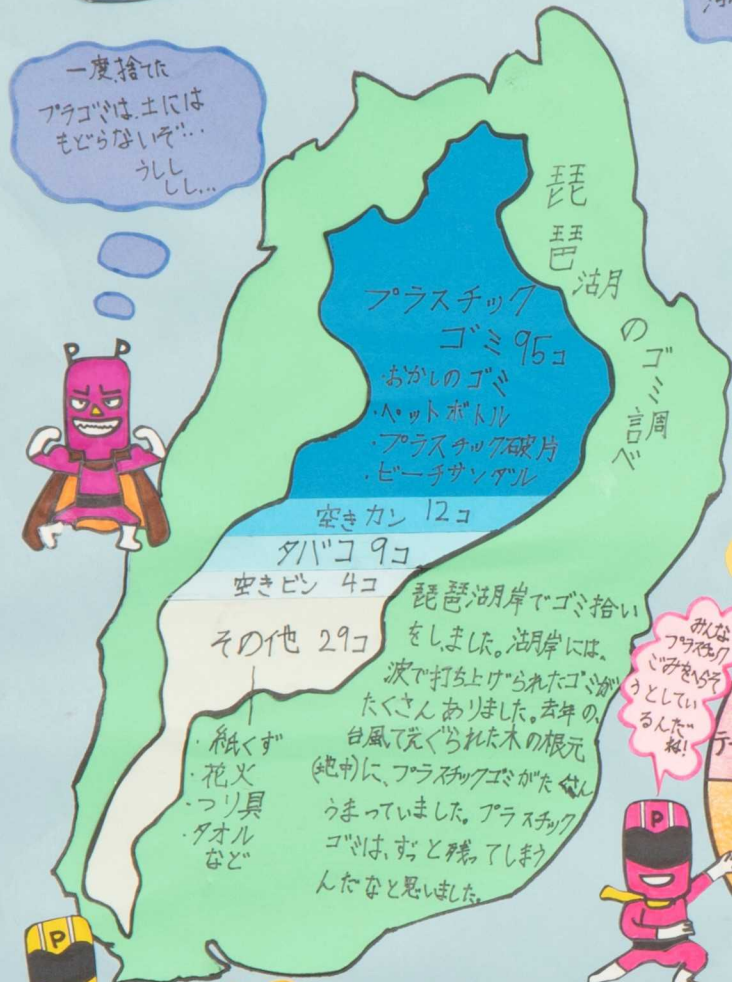 一度捨てた
プラゴミは、土には
もどらないぞ…
うしし
しし…
琵琶湖のゴミ調べ
プラスチック
ゴミ 95コ
・おかしのゴミ
・ペットボトル
・プラスチック破片
・ビーチサンダル
空きカン 12コ
タバコ 9コ
空きビン 4コ
その他 29コ
・紙くず
・花火
・つり具
・タオル
など
琵琶湖岸でゴミ拾い
をしました。湖岸には、
波で打ち上げられたゴミが
たくさんありました。去年の、
台風でえぐられた木の根元
(地中)に、プラスチックゴミがたくさん
うまっていました。プラスチック
ゴミは、ずっと残ってしまう
んだなと思いました。
みんな
プラスチック
ごみをへらそ
うとしてい
るんだ
ね!
P P
P
P